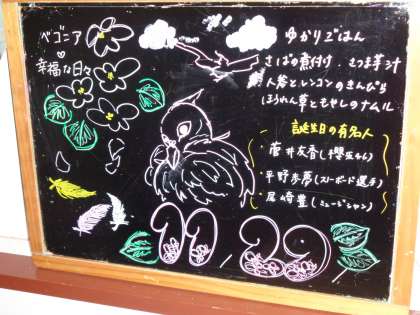 ベゴニア
幸福な日々
ゆかりごはん
さばの煮付け・さつま芋汁
人参とレンコンのきんぴら
ほうれん草ともやしのナムル
誕生日の有名人
・菅井友香(櫻坂46)
・平野歩夢(スノーボード選手)
・尾崎豊(ミュージシャン)
11 29